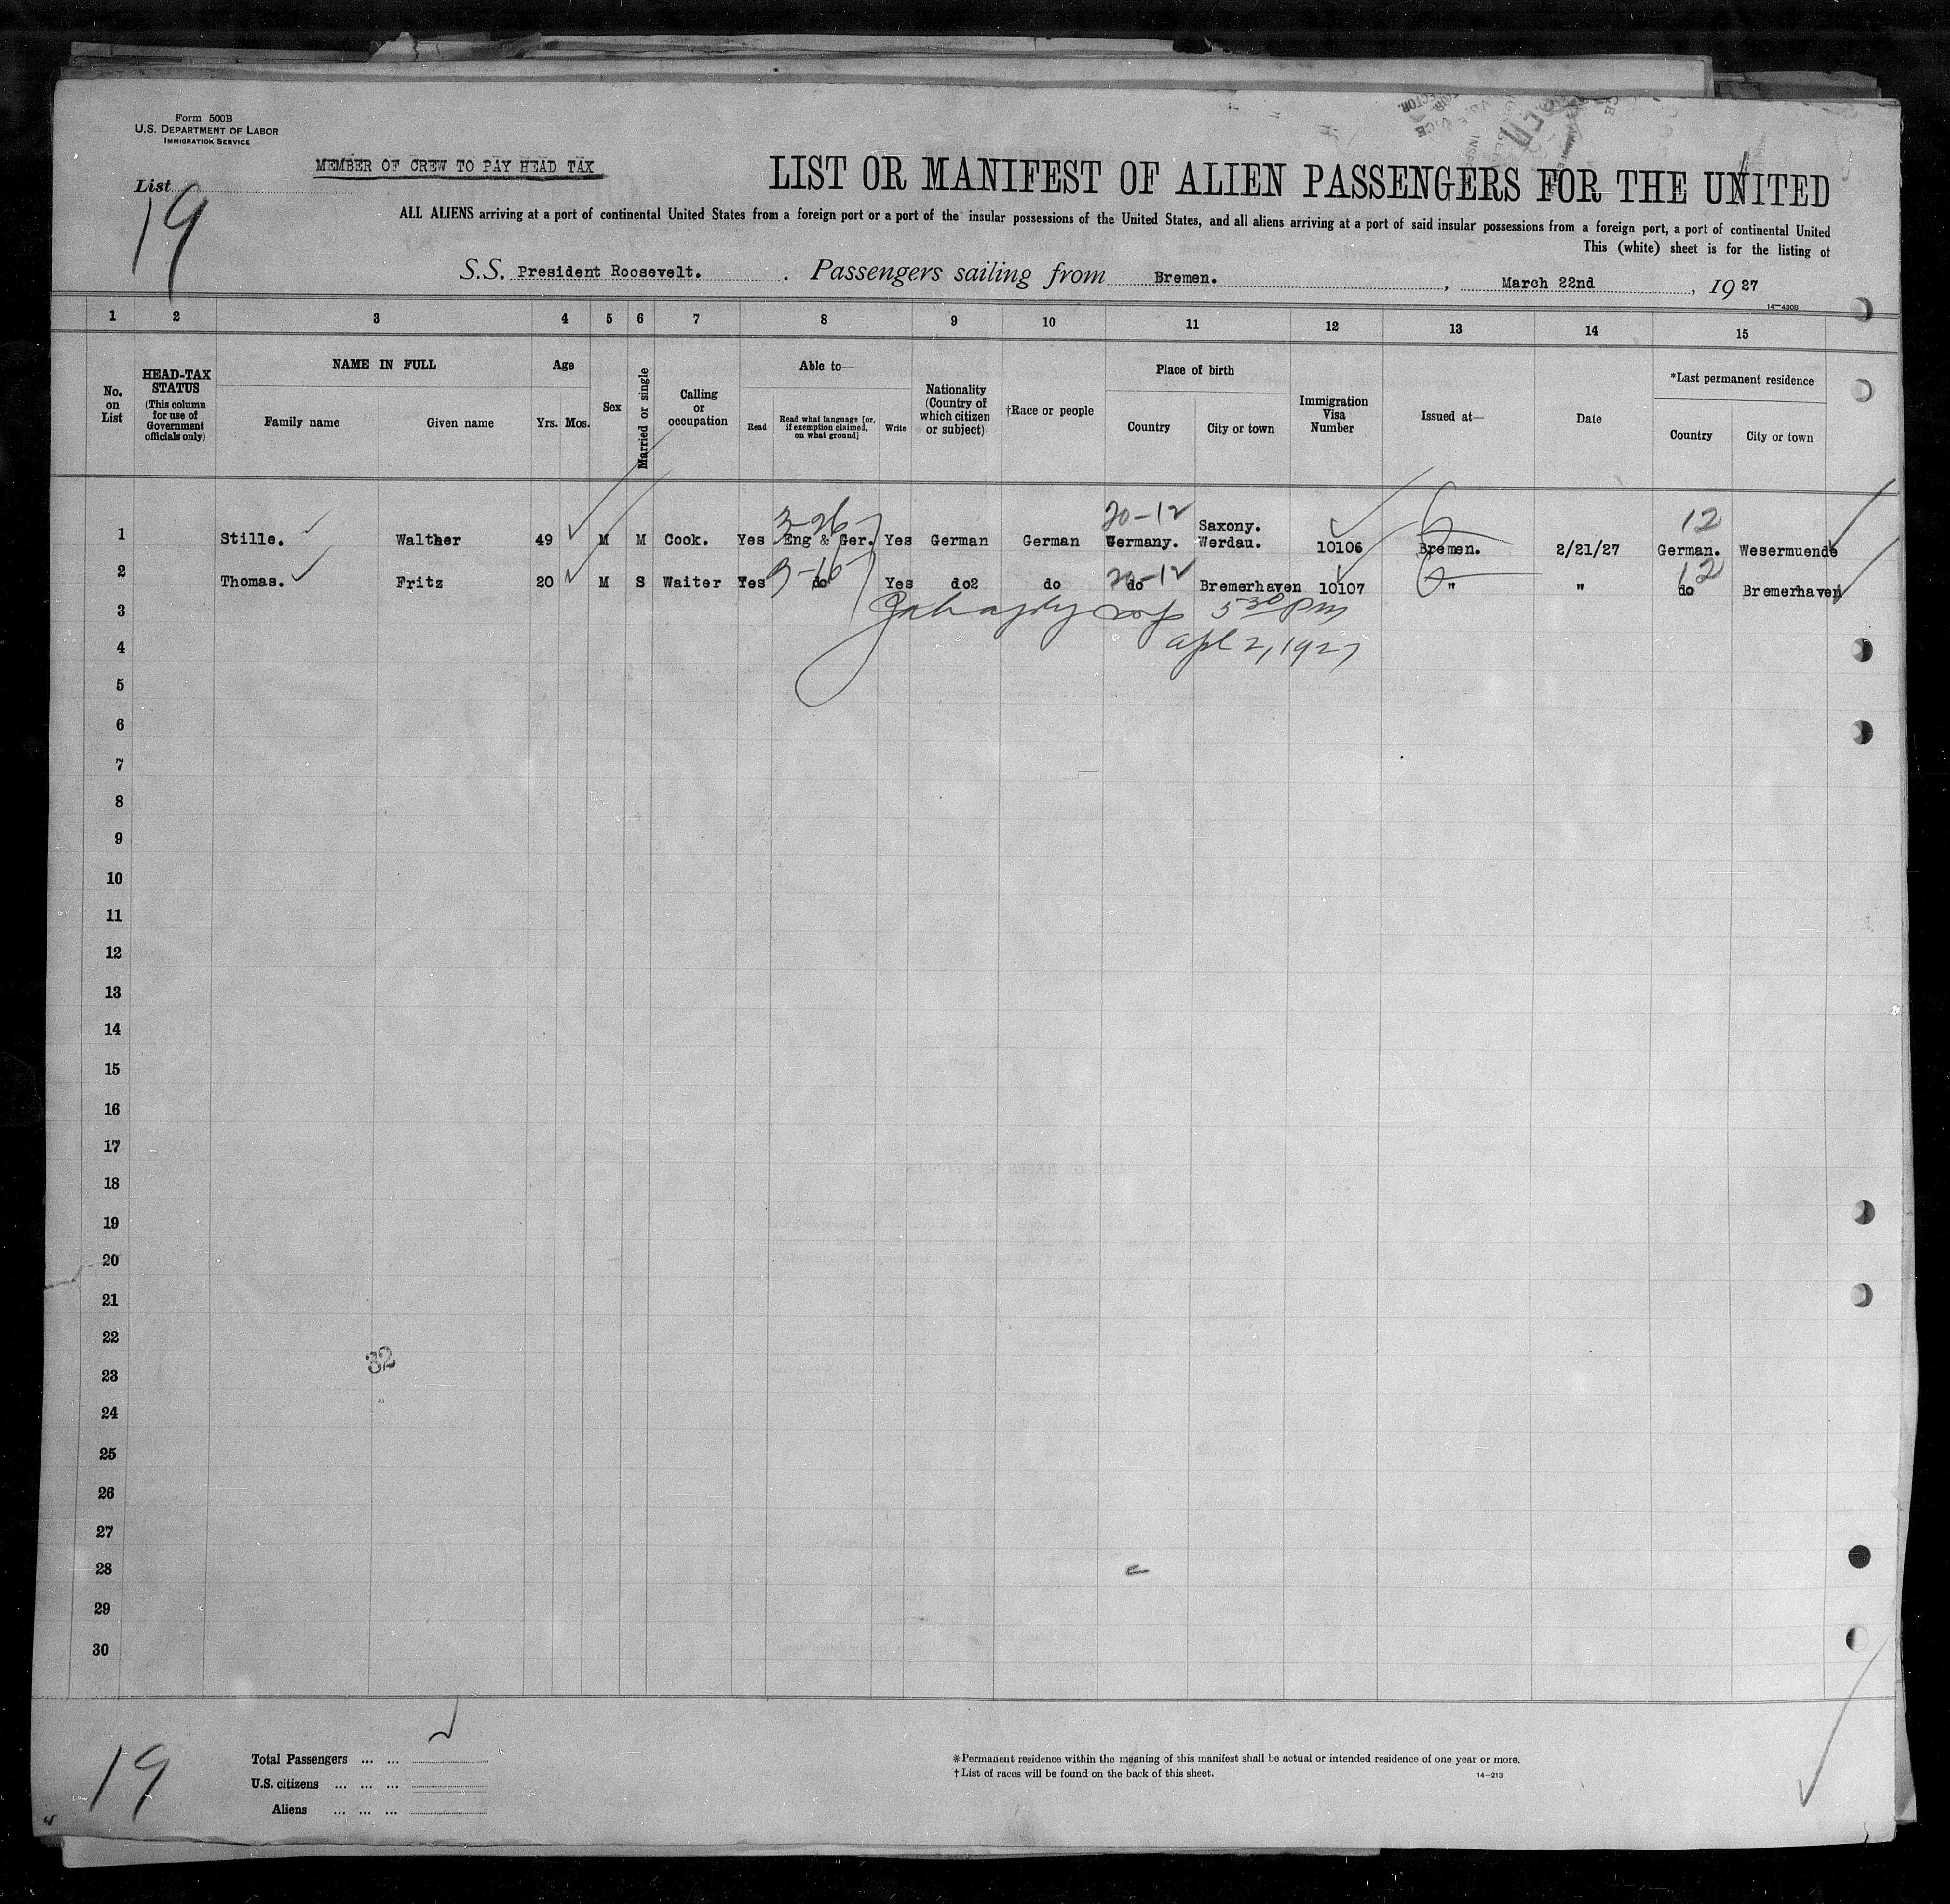 Form 500B
U.S. DEPARTMENT OF LABOR
IMMIGRATION SERVICE
MEMBER OF CREW TO PAY HEAD TAX
List 19
LIST OR MANIFEST OF ALIEN PASSENGERS FOR THE UNITED
ALL ALIENS arriving at a port of continental United States from a foreign port or a port of the insular possessions of the United States, and all aliens arriving at a port of said insular possessions from a foreign port, a port of continental United
This (white) sheet is for the listing of
S.S. President Roosevelt. Passengers sailing from Bremen. , March 22nd , 1927
14—430B
1 2 3 4 5 6 7 8 9 10 11 12 13 14 15
No. on List
HEAD-TAX STATUS (This column for use of Government officials only)
NAME IN FULL
Family name
Given name
Age
Yrs. Mos.
Sex
Married or single
Calling or occupation
Able to—
Read
Read what language [or, if exemption claimed, on what ground]
Write
Nationality (Country of which citizen or subject)
†Race or people
Place of birth
Country
City or town
Immigration Visa Number
Issued at—
Date
*Last permanent residence
Country
City or town
3-26 20-12 Saxony. 12
1 Stille. Walther 49 M M Cook. Yes Eng & Ger. Yes German German Germany. Werdau. 10106 Bremen. 2/21/27 German. Wesermuende
20-12 12
2 Thomas. Fritz 20 M S Waiter Yes do Yes do2 do do Bremerhaven 10107 " " do Bremerhaven
3 5 30 PM
4 Apl 2, 1927
5
6
7
8
9
10
11
12
13
14
15
16
17
18
19
20
21
22
32
23
24
25
26
27
28
29
30
19
Total Passengers ... ...
U.S. citizens ... ... ...
Aliens ... ... ...
*Permanent residence within the meaning of this manifest shall be actual or intended residence of one year or more.
†List of races will be found on the back of this sheet.
14—213